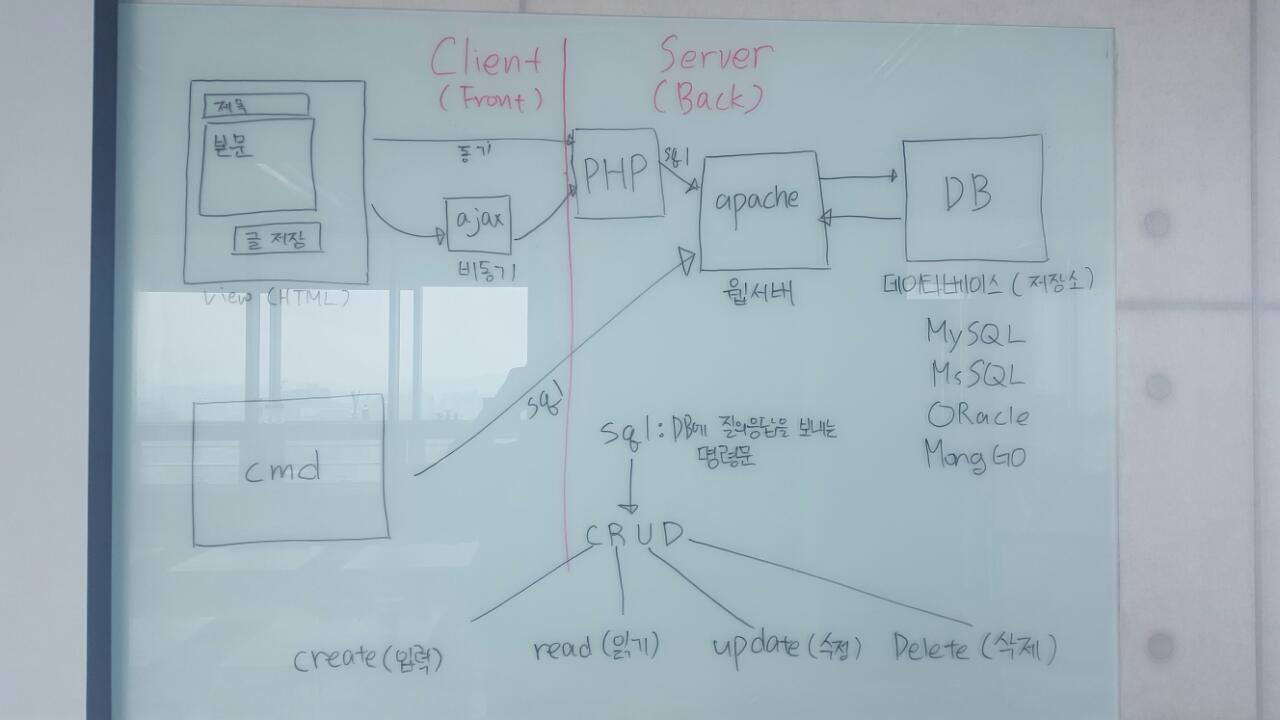 Client
(Front)
Server
(Back)
제목
본문
글 저장
View (HTML)
동기
ajax
비동기
PHP
sql
apache
웹서버
DB
데이타베이스 (저장소)
MySQL
MsSQL
ORacle
MongGO
cmd
sql
sql : DB에 질의응답을 보내는
명령문
CRUD
create (입력)
read (읽기)
update (수정)
Delete (삭제)